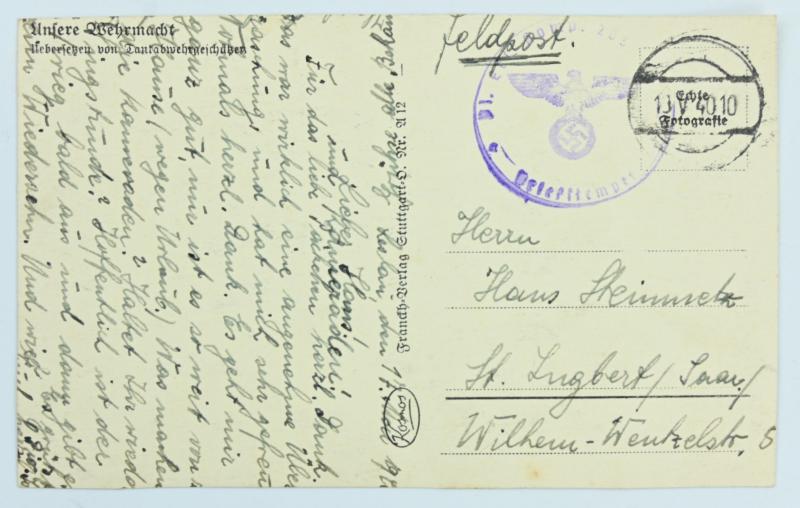 Unsere Wehrmacht
Uebersetzen von Tankabwehrgeschützen
Feldpost.
Briefstempel
10.V.40.10
Echte
Fotografie
Franckh-Verlag Stuttgart-O. Nr. A 12
Kosmos
Herrn
Hans Steinmetz
St. Ingbert/Saar/
Wilhem-Wentzelstr, 5
den 1. Mai
Lieber Hans!
und Kameraden!
Für das lieb. Päkchen herzl. Dank.
das war wirklich eine angenehme Über
raschung, und hat mich sehr gefreu
Nomals herzl. Dank. Es geht mir
ganz gut, nur ist es so weit von
Hause (wegen Urlaub.) Was machen
die kameraden? Haltet Ihr wieder
Singstunde? Hoffentlich ist der
Krieg bald aus und dann gibt es
ein Wiedersehn. Und nun